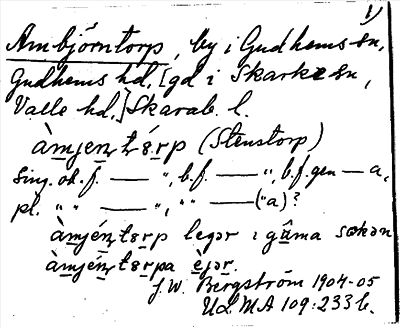 1)
Ambjörntorp, by i Gudhems sn,
Gudhems hd, [gd i Skarke sn,
Valle hd,] Skarab. l.
àmjen̥tɤ́rp (Stenstorp)
Sing. ob. f. — ", b.f. — ", b.f. gen — a,
pl. " " — ", " " — ("a)?
àmjén̥tɤrp legər ı gûma sokən
àmjén̥tɤrpa èjər.
J.W. Bergström 1904-05
ULMA 109:233 b.